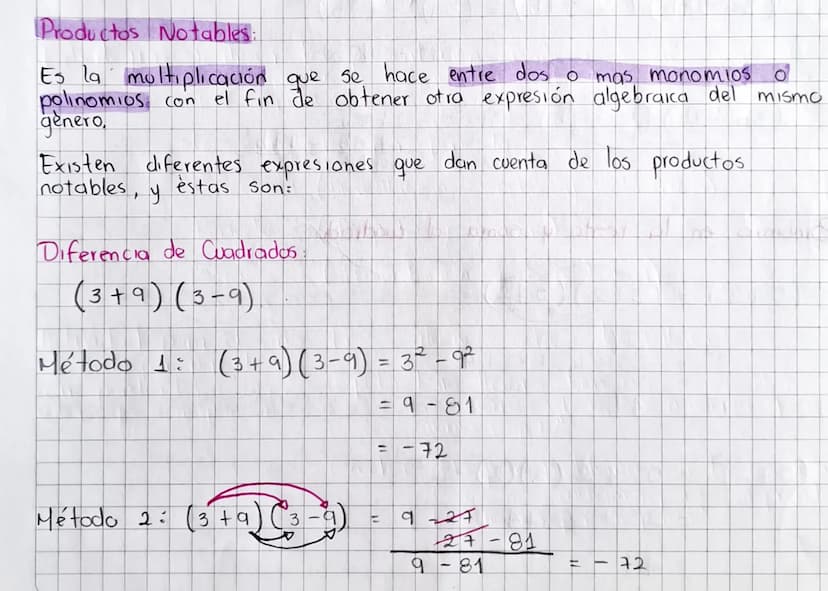 Productos Notables:
Es la multiplicación que se hace entre dos o mas monomios o
polinomios, con el fin de obtener otra expresión algebraica del mismo
gènero.
Existen diferentes expresiones que dan cuenta de los productos
notables, y èstas son:
Diferencia de Cuadrados:
(3+9)(3-9)
Método 1: (3+9)(3-9) = 3² - 9²
= 9 - 81
= - 72
Método 2: (3+9)(3-9) = 9 -27
27 - 81
9 - 81 = - 72